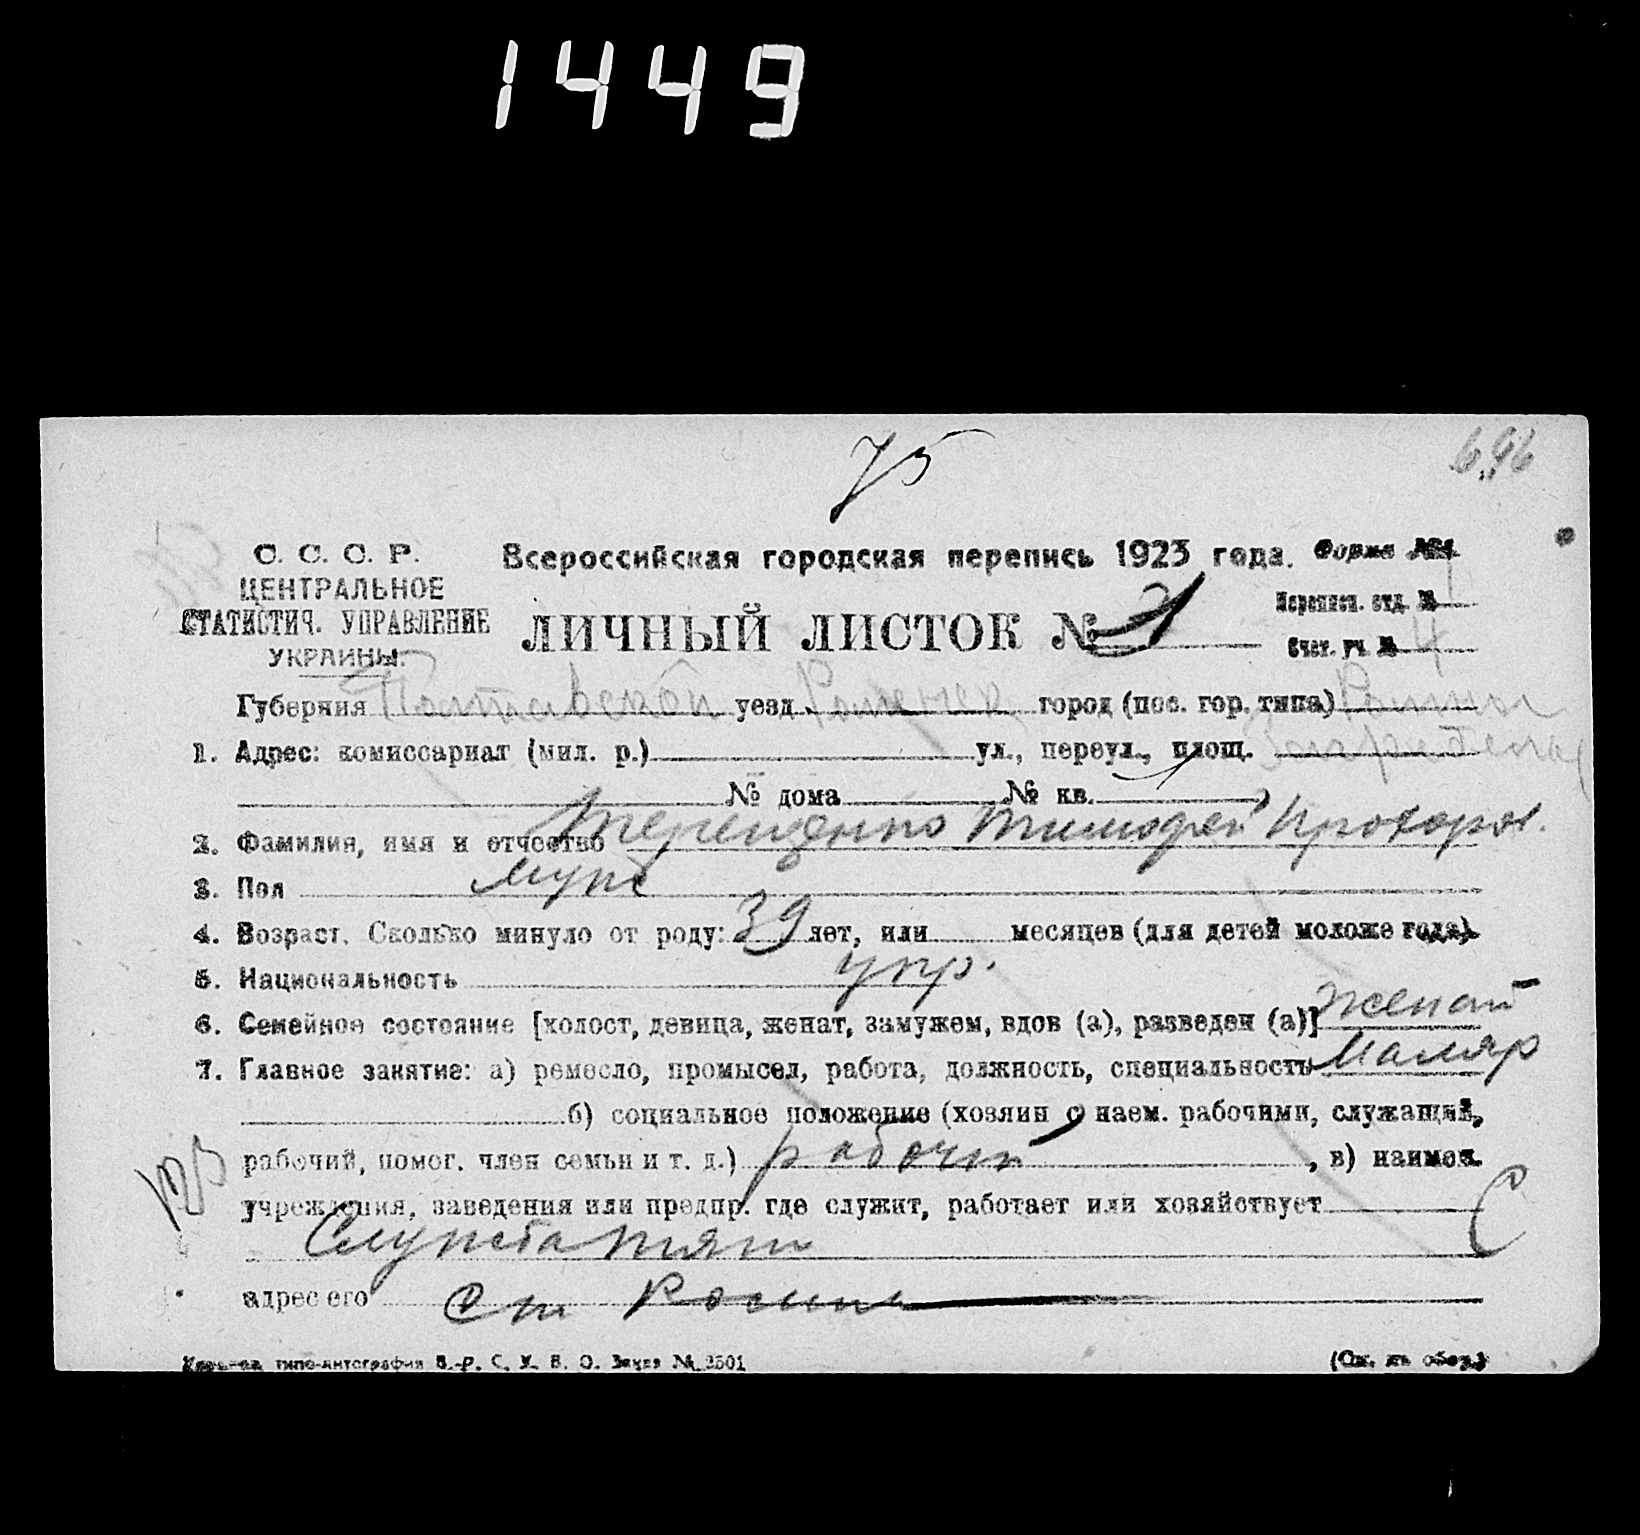 1449
75
696
С. С. С. Р.
ЦЕНТРАЛЬНОЕ
СТАТИСТИЧ. УПРАВЛЕНИЕ
УКРАИНЫ.
Всероссийская городская перепись 1923 года.
Форма №1
ЛИЧНЫЙ ЛИСТОК №
Переписн. отд. № 1
Счет. уч. № 4
Губерния Полтавской уезд Роменск город (пос. гор. типа) Ромны
1. Адрес: комиссариат (мил. р.) ул., переул., площ.
№ дома № кв.
2. Фамилия, имя и отчество Терещенко Тимофей Прохоров.
3. Пол муж
4. Возраст. Сколько минуло от роду: 39 лет, или месяцев (для детей моложе года).
5. Национальность укр.
6. Семейное состояние [холост, девица, женат, замужем, вдов (а), разведен (а)] женат
7. Главное занятие: а) ремесло, промысел, работа, должность, специальность Маляр
б) социальное положение (хозяин с наем. рабочими, служащий,
рабочий, помог. член семьи и т. д.) рабочий, в) наимен.
учреждения, заведения или предпр. где служит, работает или хозяйствует
Служба тяги
адрес его ст Ромны
типо-литография В.-Р. С. У. В. О. Заказ № 2501
(См. на обор.)